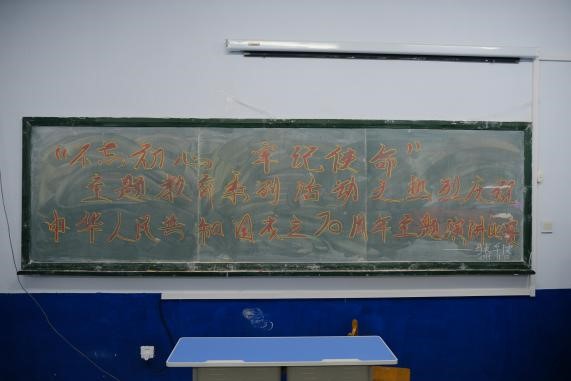 “不忘初心 牢记使命”
主题教育系列活动之热烈庆祝
中华人民共和国成立70周年主题演讲比赛